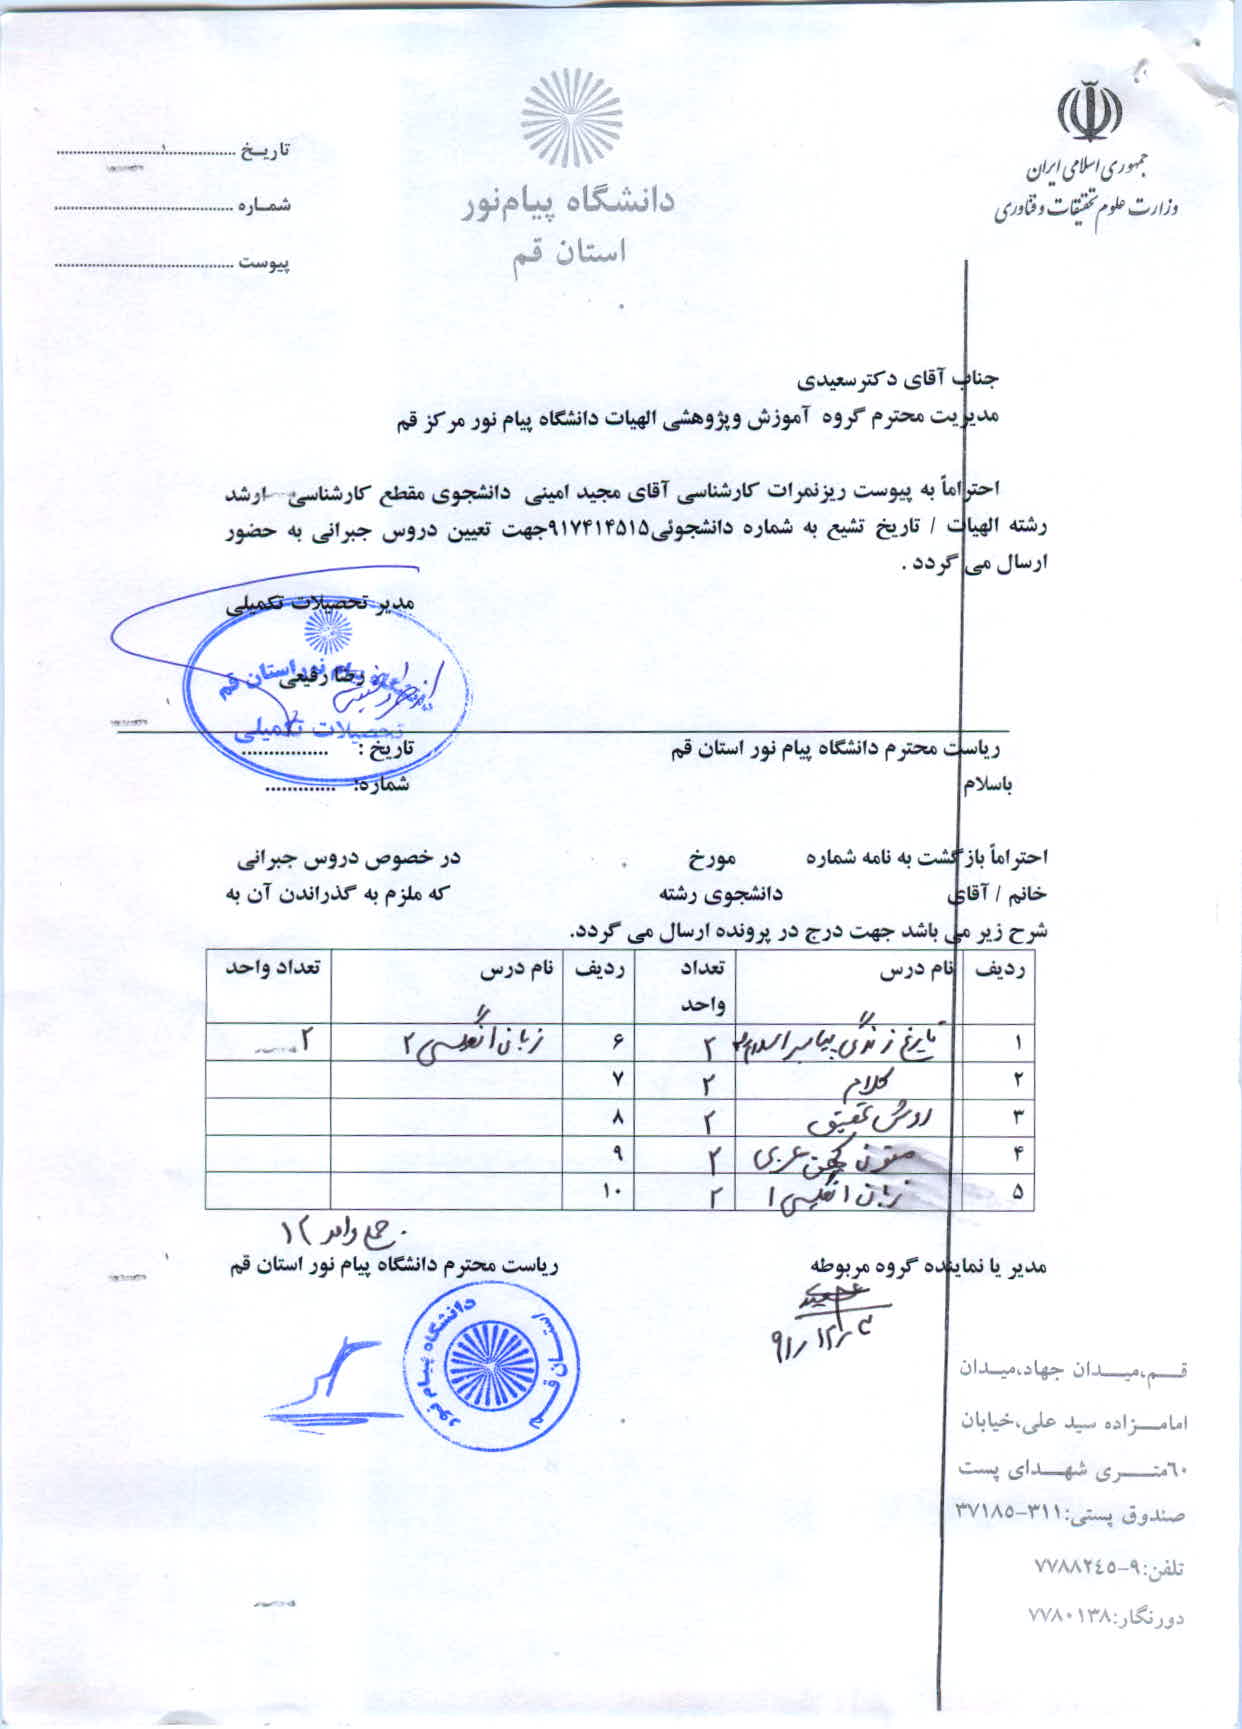 جمهوری اسلامی ایران
وزارت علوم تحقیقات و فناوری
دانشگاه پیام‌نور
استان قم
تاریـخ ........................................
شمـاره ........................................
پیوست ........................................
جناب آقای دکترسعیدی
مدیریت محترم گروه آموزش وپژوهشی الهیات دانشگاه پیام نور مرکز قم
احتراماً به پیوست ریزنمرات کارشناسی آقای مجید امینی دانشجوی مقطع کارشناسی ارشد
رشته الهیات / تاریخ تشیع به شماره دانشجوئی۹۱۷۴۱۴۵۱۵جهت تعیین دروس جبرانی به حضور
ارسال می گردد .
مدیر تحصیلات تکمیلی
رضا رفیعی
دانشگاه پیام نور استان قم
تحصیلات تکمیلی
ریاست محترم دانشگاه پیام نور استان قم تاریخ : ................
باسلام شماره: .............
احتراماً بازگشت به نامه شماره مورخ در خصوص دروس جبرانی
خانم / آقای دانشجوی رشته که ملزم به گذراندن آن به
شرح زیر می باشد جهت درج در پرونده ارسال می گردد.
ردیف نام درس تعداد واحد ردیف نام درس تعداد واحد
۱ تاریخ زندگی پیامبر اسلام ۲ ۶ زبان انگلیسی ۲ ۲
۲ کلام ۲ ۷
۳ روش تحقیق ۲ ۸
۴ متون کهن عربی ۲ ۹
۵ زبان انگلیسی ۱ ۲ ۱۰
جمع واحد ۱۲
مدیر یا نماینده گروه مربوطه ریاست محترم دانشگاه پیام نور استان قم
سعیدی
۹۱/۱۲/۳
دانشگاه پیام نور
استان قم
قـم،میـدان جهاد،میـدان
امامـزاده سید علی،خیابان
۶۰متـری شهـدای پست
صندوق پستی:۳۱۱-۳۷۱۸۵
تلفن:۹-۷۷۸۸۲٤٥
دورنگار:۷۷۸۰۱۳۸